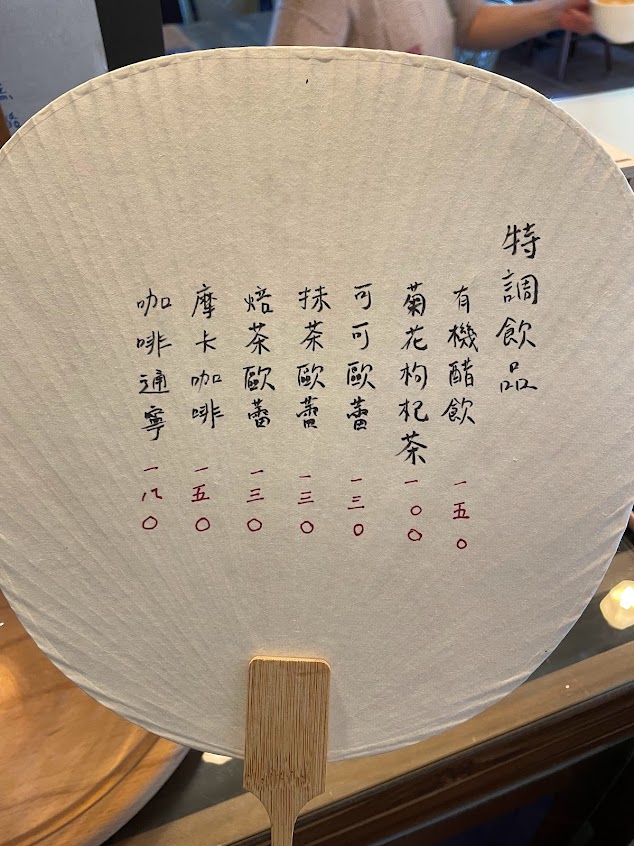 特調飲品
有機醋飲 一五〇
菊花枸杞茶 一〇〇
可可歐蕾 一三〇
抹茶歐蕾 一三〇
焙茶歐蕾 一三〇
摩卡咖啡 一五〇
咖啡通寧 一八〇